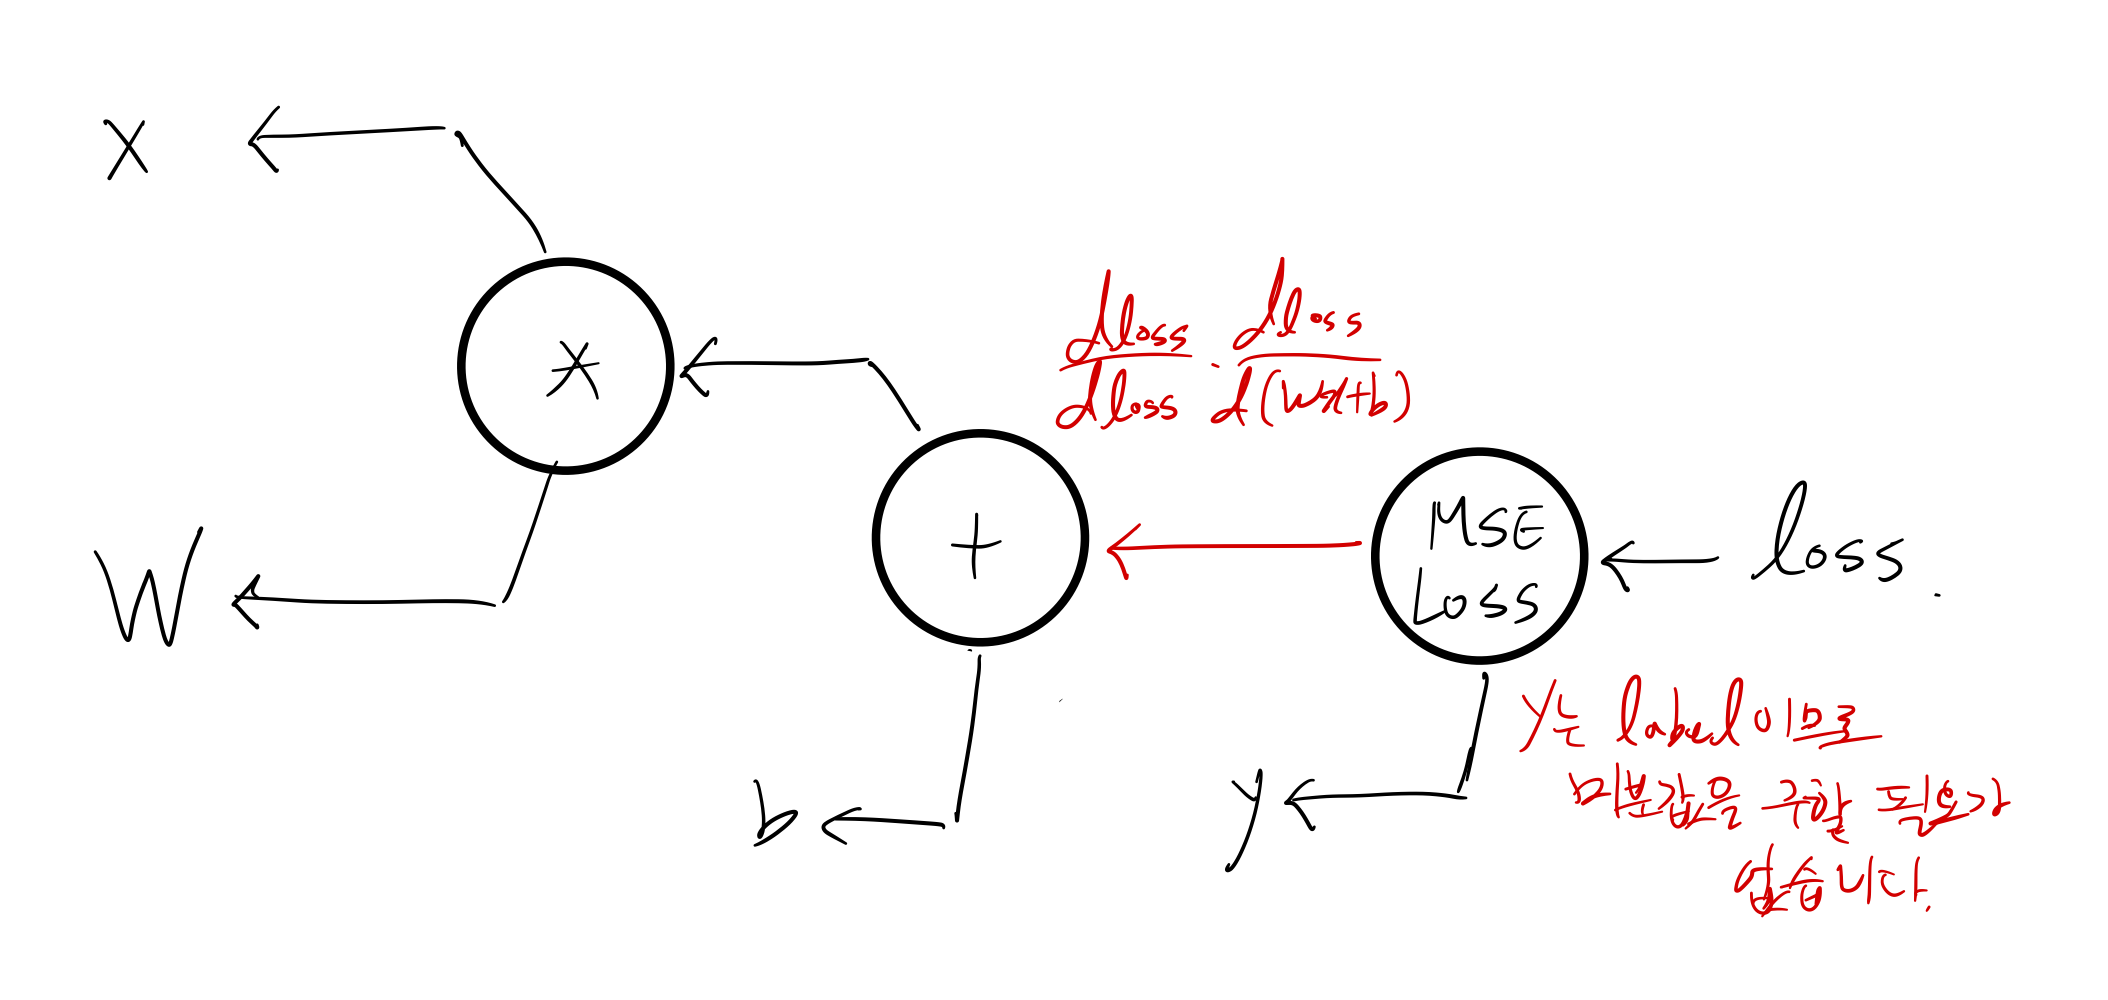 x
*
W
dloss/dloss · dloss/d(wx+b)
+
MSE
Loss
loss.
b
y
y는 label이므로
미분값을 구할 필요가
없습니다.